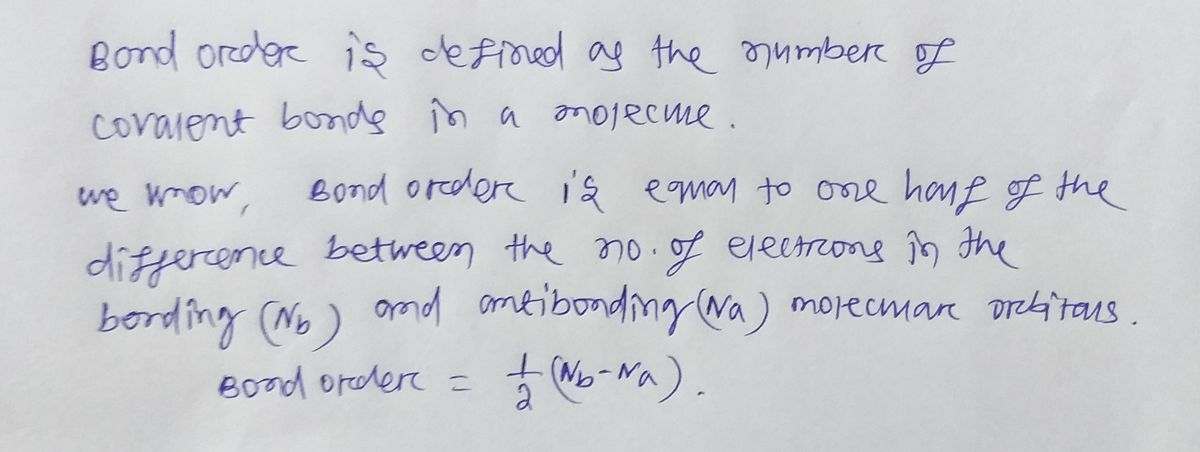 Bond order is defined as the number of
covalent bonds in a molecule.
we know, Bond order is equal to one half of the
difference between the no. of electrons in the
bonding (Nb) and antibonding (Na) molecular orbitals.
Bond order = 1/2 (Nb-Na).